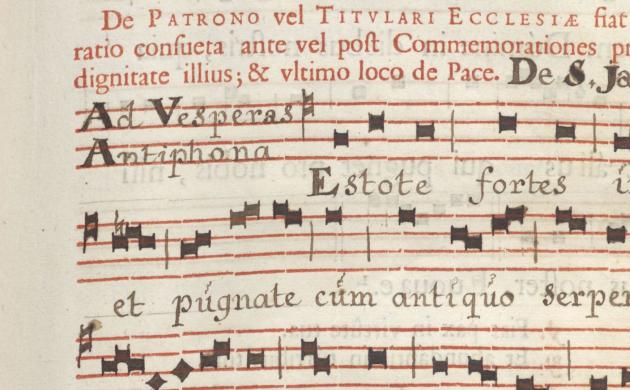 De PATRONO vel TITVLARI ECCLESIÆ fiat
ratio conſueta ante vel poſt Commemorationes
dignitate illius; & vltimo loco de Pace. De S. Ja
Ad Vesperas
Antiphona
Estote fortes
et púgnate cúm antiqúo Serpe